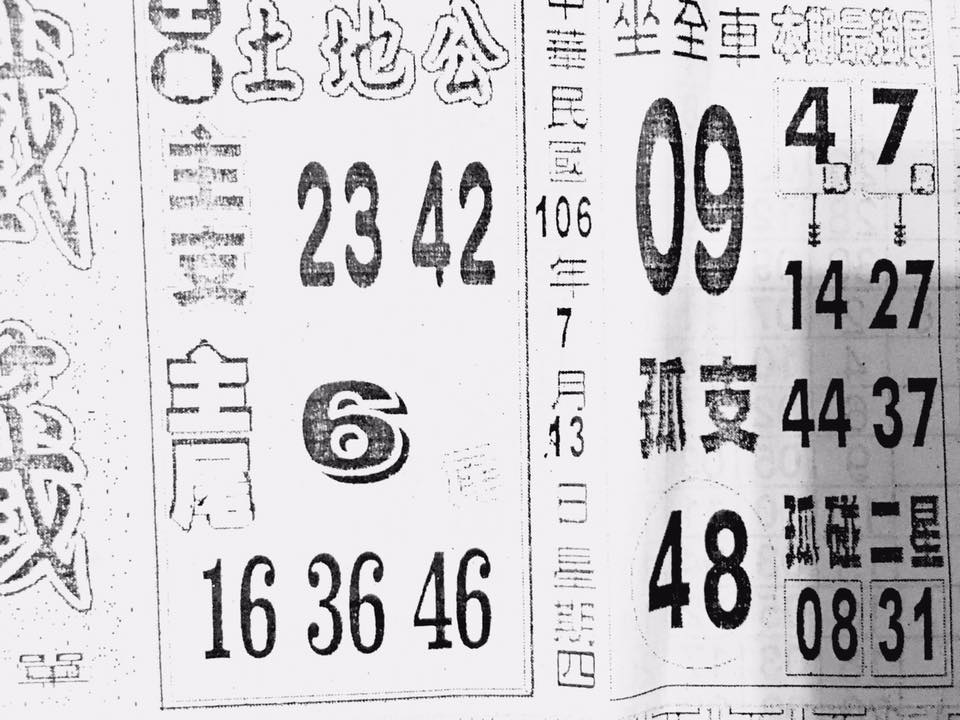 土地公
主支
23 42
主尾
6
16 36 46
中華民國106年7月13日星期四
坐全車
09
孤支
48
本期最強尾
4尾 7尾
14 27
44 37
孤碰二星
08 31